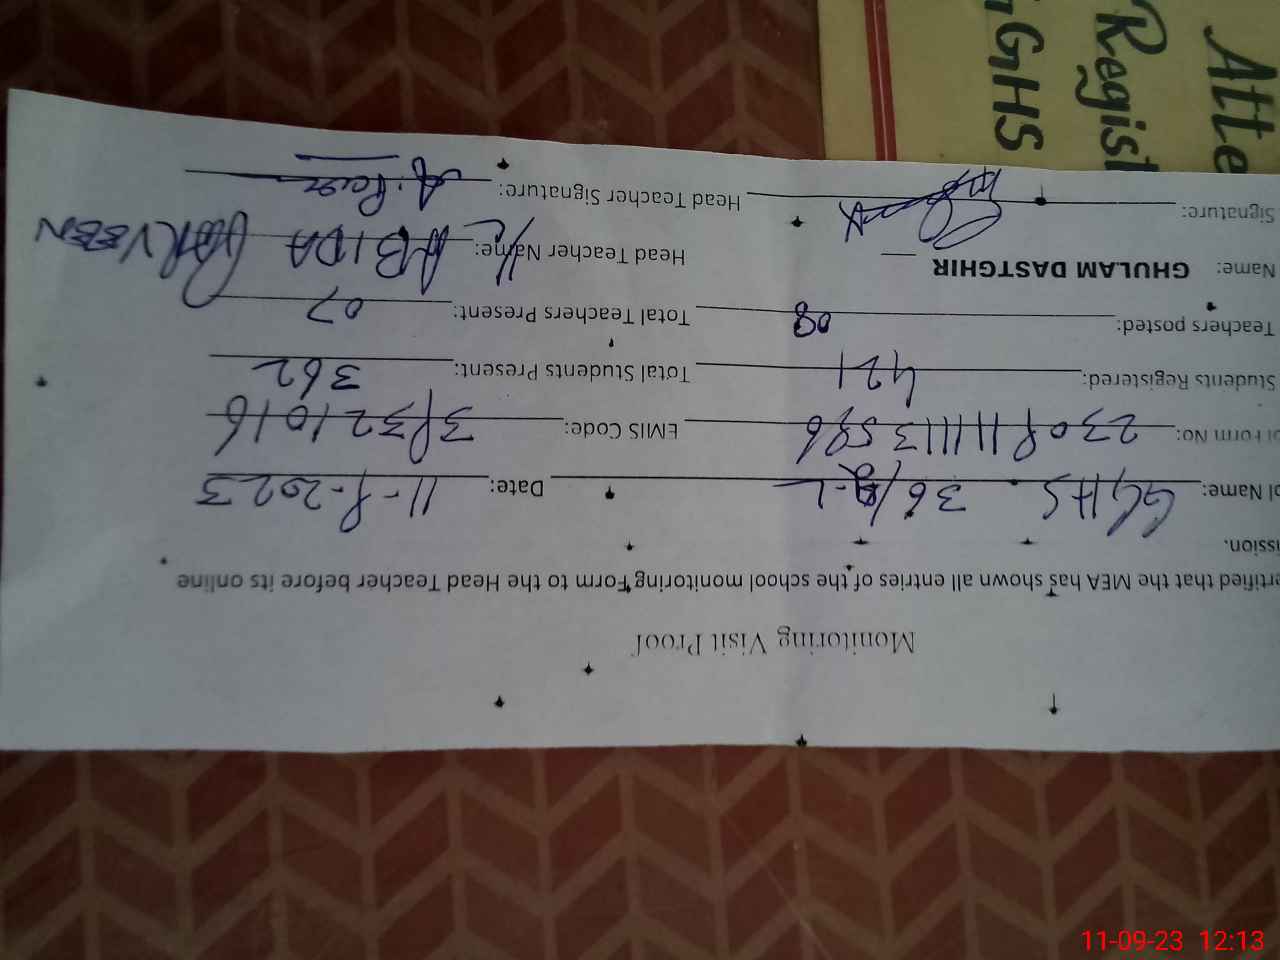 Monitoring Visit Proof
ertified that the MEA has shown all entries of the school monitoring Form to the Head Teacher before its online
ission.
ol Name: GGHS 36/2-L Date: 11-9-2023
ol Form No: 230911113586 EMIS Code: 39321016
Students Registered: 421 Total Students Present: 362
Teachers posted: 08 Total Teachers Present: 07
Name: GHULAM DASTGHIR Head Teacher Name: I/C ABIDA PARVEEN
Signature: Head Teacher Signature:
Atte
Regist
GGHS
11-09-23 12:13